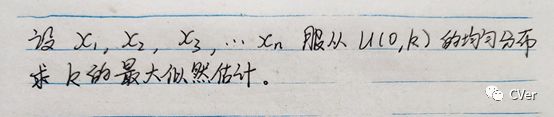 设 x₁, x₂, x₃, … xₙ 服从 U(0, k) 的均匀分布
求 k 的最大似然估计。
CVer